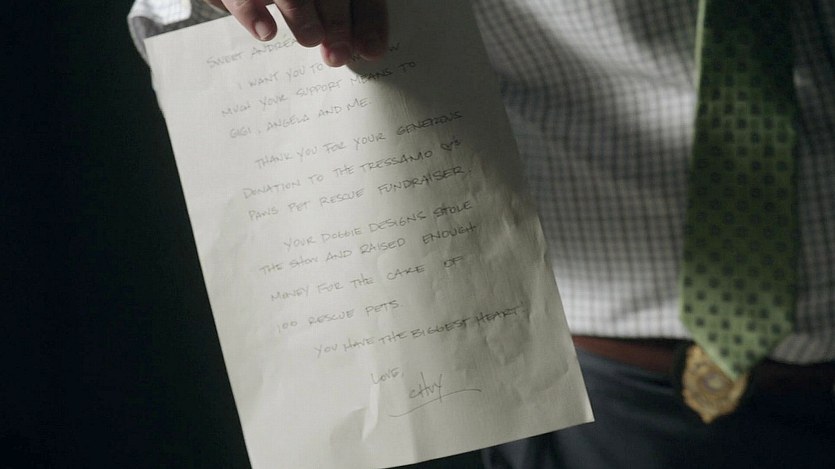 SWEET ANDREA
I WANT YOU TO W
MUCH YOUR SUPPORT MEANS TO
GIGI, ANGELA AND ME.
THANK YOU FOR YOUR GENEROUS
DONATION TO THE TRESSAMO
PAWS PET RESCUE FUNDRAISER.
YOUR DOGGIE DESIGNS STOLE
THE SHOW AND RAISED ENOUGH
MONEY FOR THE CARE OF
100 RESCUE PETS.
YOU HAVE THE BIGGEST HEART.
LOVE,